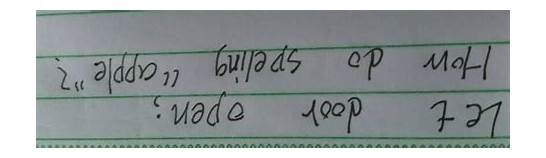 Let door open:
How do speling "apple"?